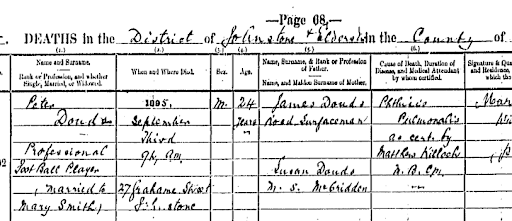 Page 68.
DEATHS in the District of Johnstone & Elderslie in the County of
(1.) (2.) (3.) (4.) (5.) (6.)
Name and Surname.
Rank or Profession, and whether
Single, Married, or Widowed.
When and Where Died.
Sex.
Age.
Name, Surname, & Rank or Profession
of Father.
Name, and Maiden Surname of Mother.
Cause of Death, Duration of
Disease, and Medical Attendant
by whom certified.
Signature & Qu
and Residence,
which the
Peter
Douds
Professional
Foot Ball Player
(married to
Mary Smith)
1895.
September
Third
9h. am.
27 Grahame Street
Johnstone
M.
24
years
James Douds
Road Surfaceman
Susan Douds
m. s. McFadden
Phthisis
Pulmonalis
as cert. by
Matthew Killoch
M.B. CM.